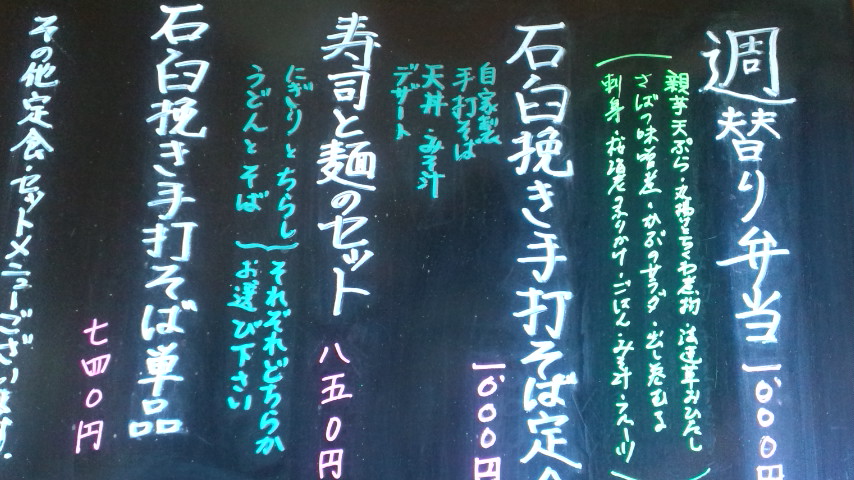 週替り弁当 一〇〇〇円
親芋天ぷら・丸揚とちくわ煮物 法蓮草おひたし
さばの味噌煮・かぶのサラダ・出し巻む
刺身・桜海老ふりかけ・ごはん・みそ汁・フルーツ
石臼挽き手打そば定
一〇〇〇円
自家製
手打そば
天丼 みそ汁
デザート
寿司と麺のセット 八五〇円
にぎりとちらし
うどんとそば
それぞれどちらか
お選び下さい
石臼挽き手打そば単品
七四〇円
その他定食セットメニューございます。